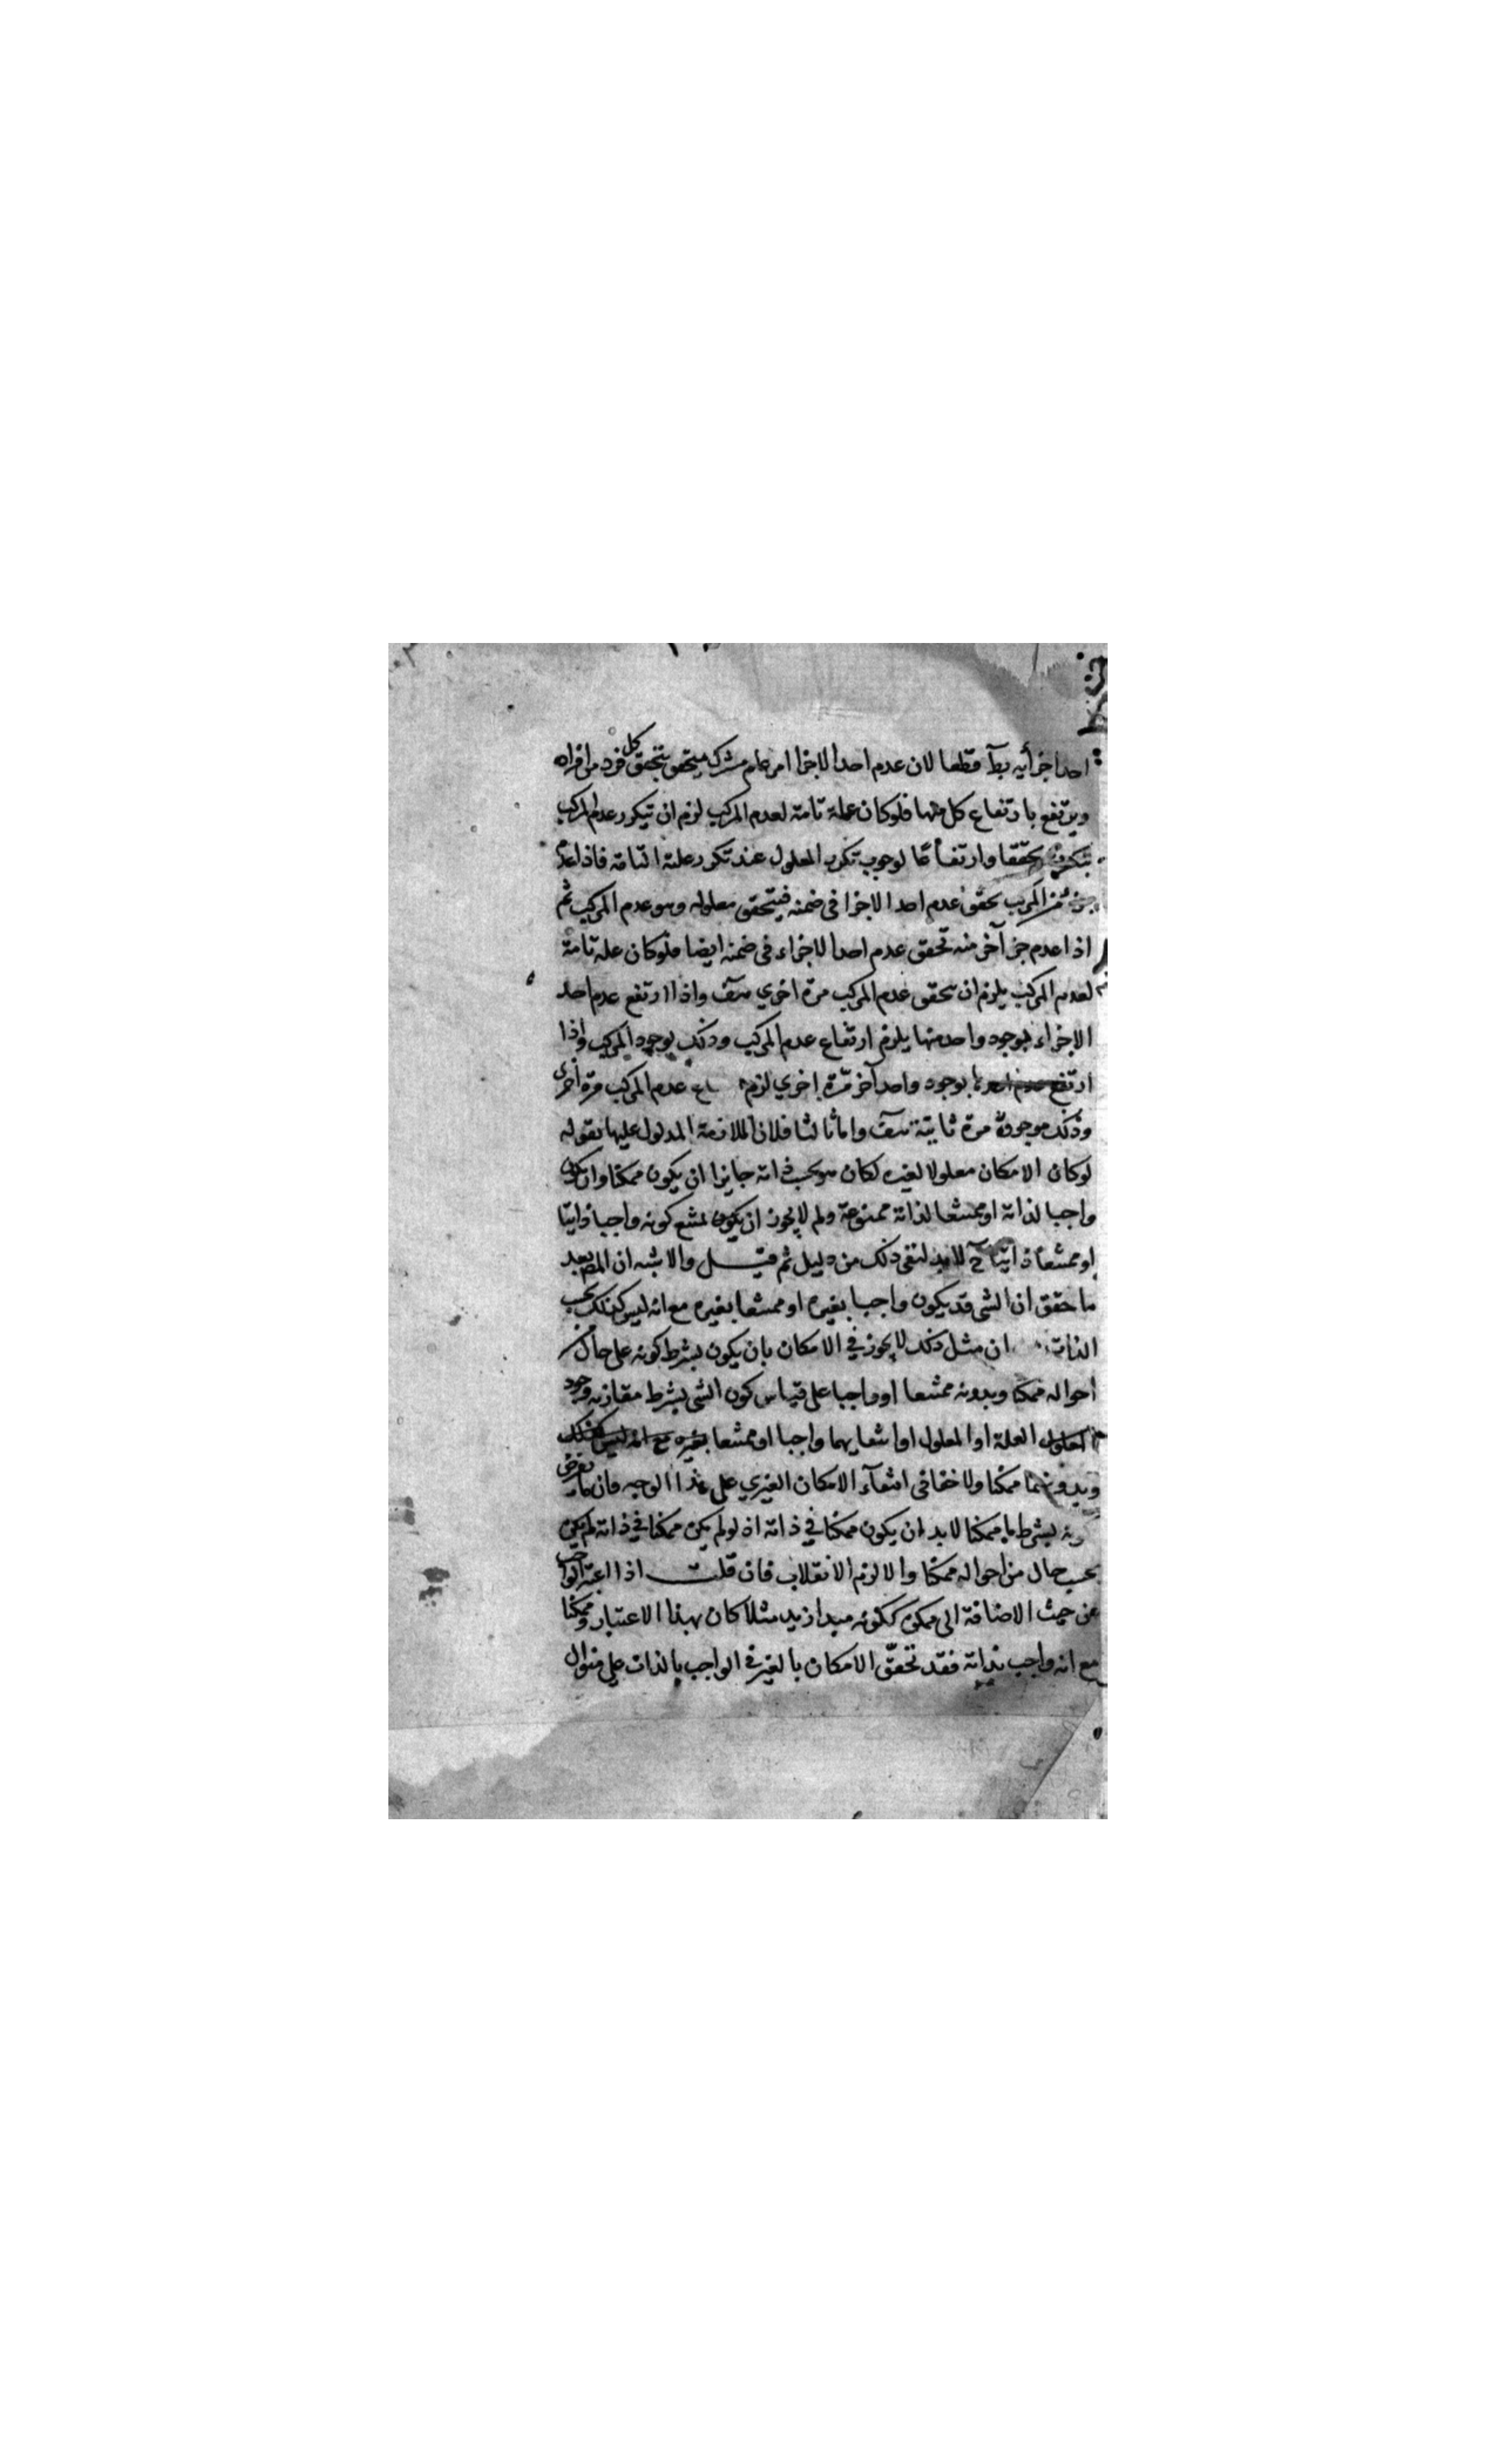 احد اجزائه بتا قطعا لان عدم احد الاجزا امر عام مشترك يتحقق بتحقق كل فرد من افراده
ويرتفع بارتفاع كل منها فلو كان علة تامة لعدم المركب لزم ان يتكرر عدم المركب
تحققا وارتفاعا لوجوب تكرر المعلول عند تكرر علته التامة فاذا عدم
جزء من المركب تحقق عدم احد الاجزا في ضمنه فيتحقق معلوله وهو عدم المركب ثم
اذا عدم جزء آخر منه تحقق عدم احد الاجزاء في ضمنه ايضا فلو كان علة تامة
لعدم المركب يلزم ان يتحقق عدم المركب مرة اخري هف واذا ارتفع عدم احد
الاجزاء بوجود واحد منها يلزم ارتفاع عدم المركب وذلك بوجود المركب واذا
ارتفع بوجود واحد آخر مرة اخري لزم عدم المركب مرة اخرى
وذلك موجودة مرة ثانية هف واما ثالثا فلان الملازمة المدلول عليها بقوله
لو كان الامكان معلولا لغيره لكان هو بحسب ذاته جايزا ان يكون ممكنا وان يكون
واجبا لذاته او ممتنعا لذاته ممنوعة ولم لا يجوز ان يكون ممتنع كونه واجبا ذاتيا
او ممتنعا ذاتيا ح لا بد لنفي ذلك من دليل ثم قيل والاشبه ان المص بعد
ما حقق ان الشي قد يكون واجبا بغيره او ممتنعا بغيره مع انه ليس كذلك بحسب
الذات ان مثل ذلك لا يجوز في الامكان بان يكون بشرط كونه على حال من
احواله ممكنا وبدونه ممتنعا او واجبا على قياس كون الشي بشرط مقارنة وجود
العلة او المعلول او انتفايهما واجبا او ممتنعا بغيره مع انه ليس كذلك
وبدونهما ممكنا ولا خفا في انتفآء الامكان الغيري على هذا الوجه فان ما يفرض
كونه بشرط ما ممكنا لا بد ان يكون ممكنا في ذاته اذ لو لم يكن ممكنا في ذاته لم يكن
بحسب حال من احواله ممكنا والا لزم الانقلاب فان قلت اذا اعتبر الواجب
من حيث الاضافة الى ممكن ككونه مبدا زيد مثلا كان بهذا الاعتبار ممكنا
مع انه واجب بذاته فقد تحقق الامكان بالغير في الواجب بالذات على منوال